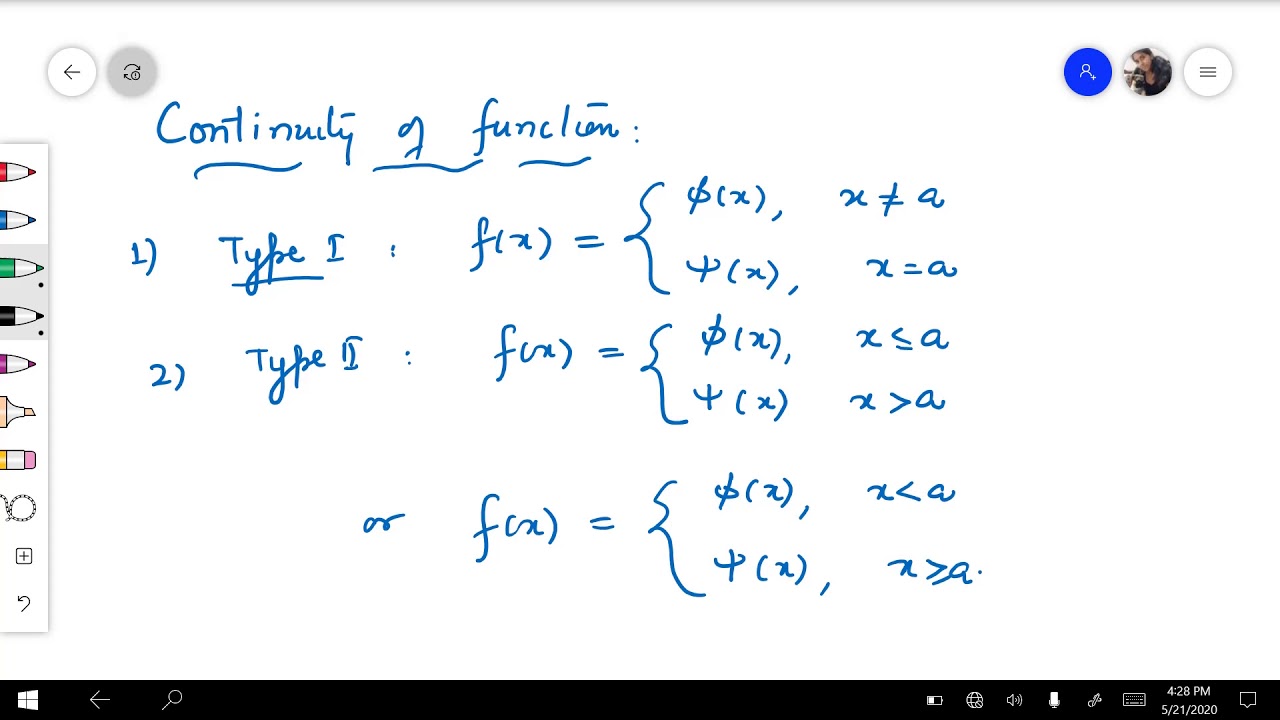 Continuity of function:
1) Type I : f(x) = { φ(x), x ≠ a
ψ(x), x = a
2) Type II : f(x) = { φ(x), x ≤ a
ψ(x) x > a
or f(x) = { φ(x), x < a
ψ(x), x ⩾ a.
4:28 PM
5/21/2020